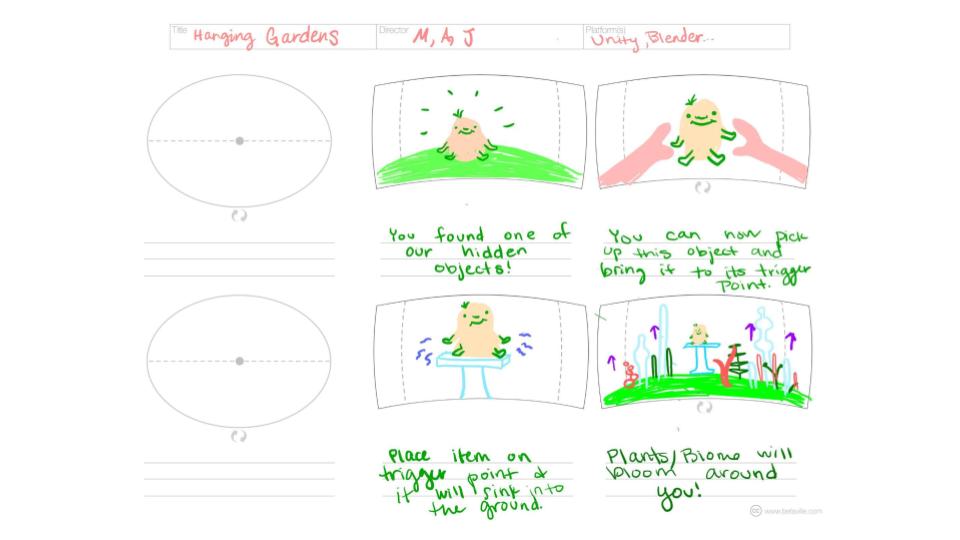 Title Hanging Gardens
Director M, A, J
Platform(s) Unity, Blender...
You found one of
our hidden
objects!
You can now pick
up this object and
bring it to its trigger
Point.
Place item on
trigger point &
it will sink into
the ground.
Plants/Biome will
bloom around
you!
cc www.betaville.com